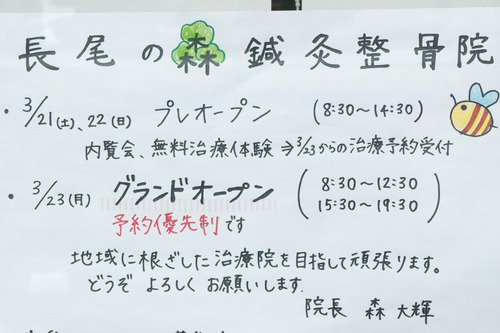 長尾の森鍼灸整骨院
・3/21(土)、22(日) プレオープン (8:30〜14:30)
内覧会、無料治療体験⇒3/23からの治療予約受付
・3/23(月) グランドオープン (8:30〜12:30
15:30〜19:30)
予約優先制です
地域に根ざした治療院を目指して頑張ります。
どうぞ よろしく お願いします.
院長 森 大輝